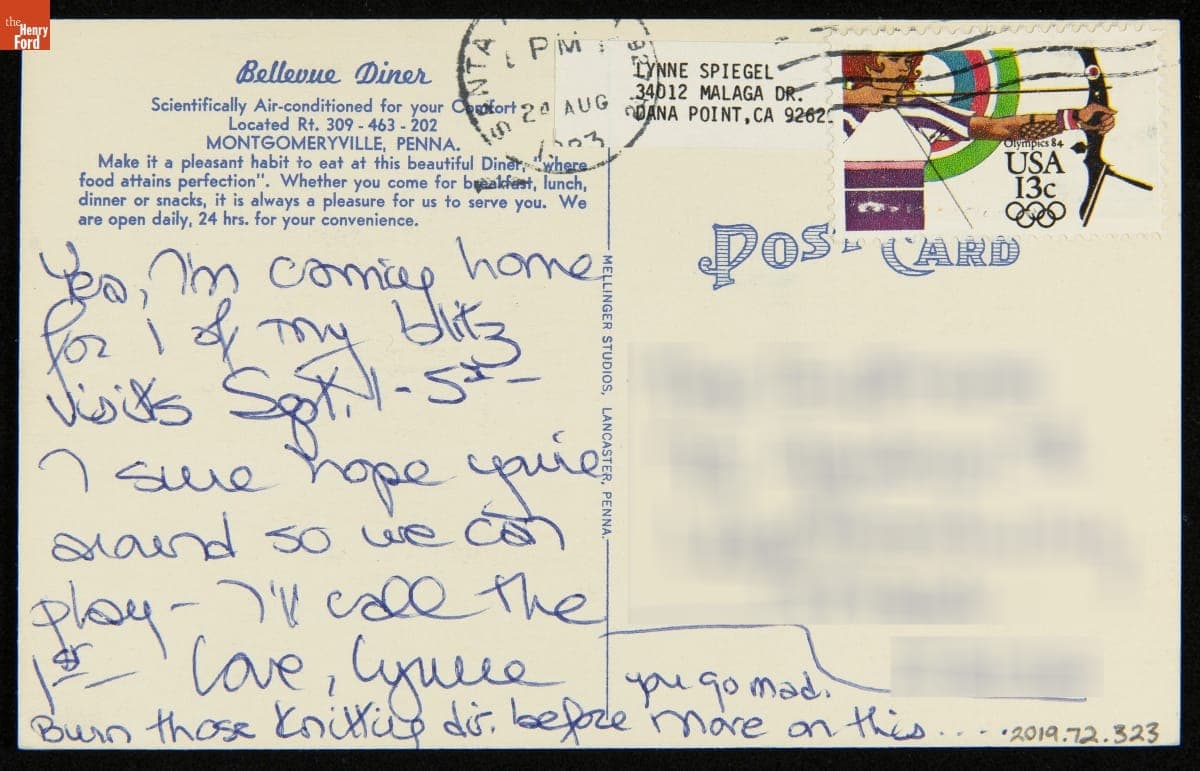 the
Henry
Ford
Bellevue Diner
Scientifically Air-conditioned for your Comfort
Located Rt. 309 - 463 - 202
MONTGOMERYVILLE, PENNA.
Make it a pleasant habit to eat at this beautiful Diner, "where
food attains perfection". Whether you come for breakfast, lunch,
dinner or snacks, it is always a pleasure for us to serve you. We
are open daily, 24 hrs. for your convenience.
Yes, I'm coming home
for 1 of my blitz
visits Sept. 1-5th -
I sure hope you're
around so we can
play - I'll call the
1st - Love, Lynne
Burn those Knitting dir. before more on this.....
you go mad.
MELLINGER STUDIOS, LANCASTER, PENNA.
SANTA
PM
24 AUG
LYNNE SPIEGEL
34012 MALAGA DR.
DANA POINT, CA 9262
Olympics 84
USA
13c
POST CARD
2019.72.323